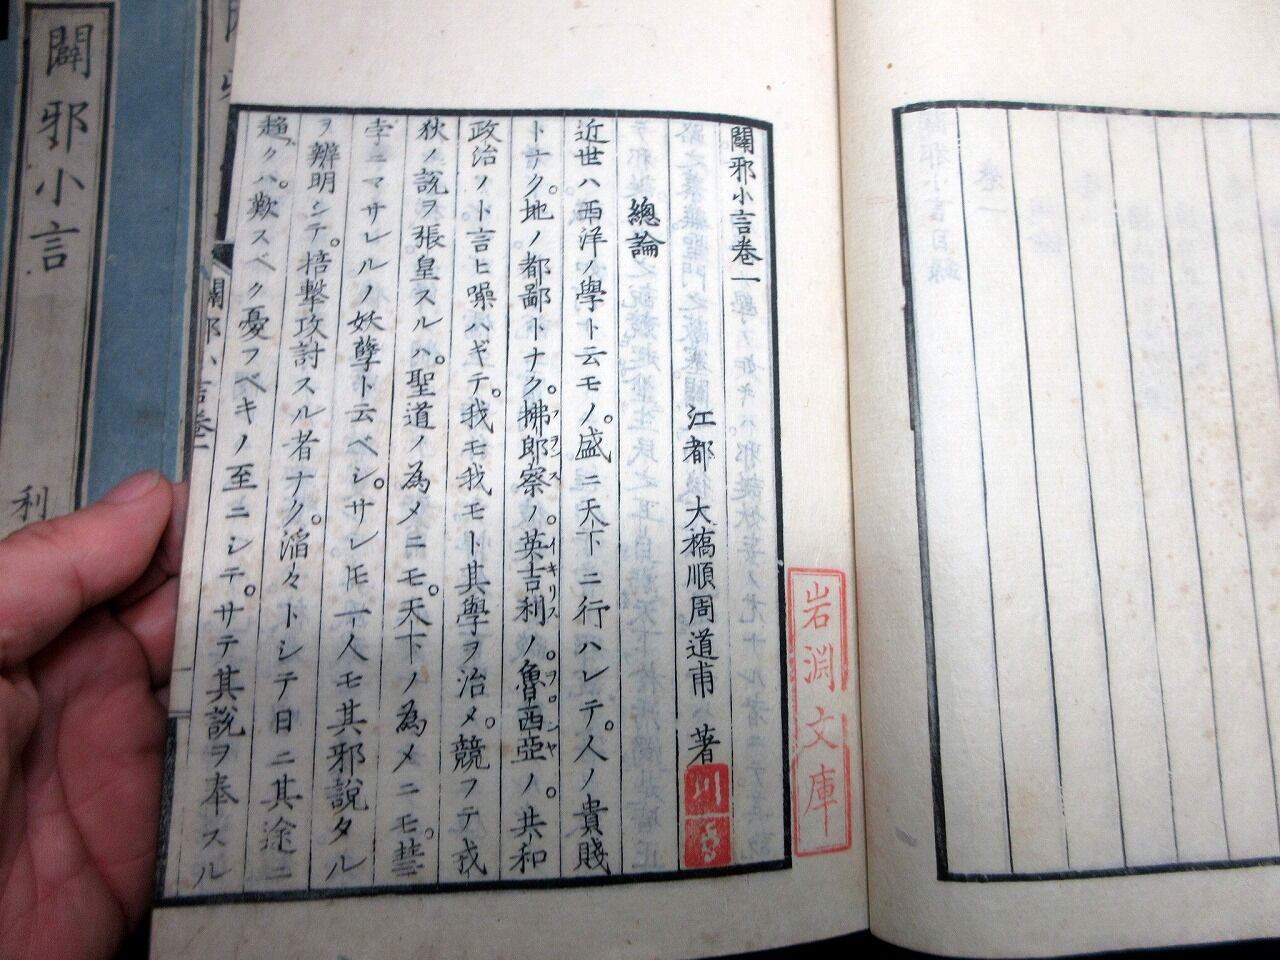 闢邪小言
利
闢邪小言巻一
江都 大橋順周道甫 著
總論
近世ハ西洋ノ學ト云モノ。盛ニ天下ニ行ハレテ。人ノ貴賤
トナク。地ノ都鄙トナク。拂郎察ノ。英吉利ノ。魯西亞ノ。共和
政治ノト言ヒ噪ハギテ。我モ我モト其學ヲ治メ。競フテ戎
狄ノ說ヲ張皇スルハ。聖道ノ為メニモ。天下ノ為メニモ。彗
孛ニマサレルノ妖孽ト云ベシ。サレ𪜈一人モ其邪說タル
ヲ辨明シテ。掊擊攻討スル者ナク。滔々トシテ日ニ其途ニ
趨クハ。歎スベク憂フベキノ至ニシテ。サテ其說ヲ奉スル
フランス
イキリス
ヲロシヤ
闢邪小言巻一
岩淵文庫